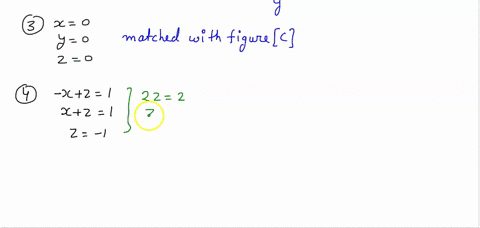 y
③ x=0
y=0 matched with figure [C]
z=0
④ -x+z=1 } 2z=2
x+z=1 z
z=-1